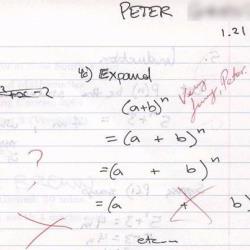 PETER
1.21
4b) Expand
(a+b)ⁿ
Very funny, Peter.
= (a + b)ⁿ
?
= (a   +   b)ⁿ
= (a     +     b)
etc...